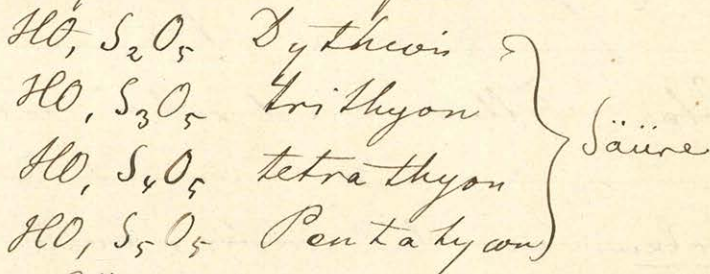 HO, S₂O₅ Dythion
HO, S₃O₅ trithyon
HO, S₄O₅ tetrathyon } Säure
HO, S₅O₅ Pentathyon